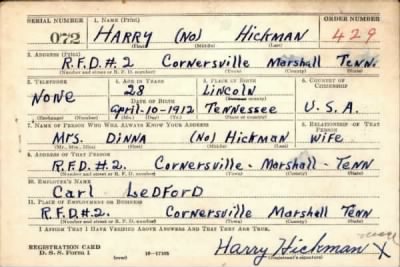 SERIAL NUMBER 1. NAME (Print) ORDER NUMBER
072 HARRY (No) Hickman 429
(First) (Middle) (Last)
2. ADDRESS (Print)
R.F.D.#.2 Cornersville Marshall Tenn.
(Number and street or R. F. D. number) (Town) (County) (State)
3. TELEPHONE 4. AGE IN YEARS 5. PLACE OF BIRTH 6. COUNTRY OF CITIZENSHIP
28 Lincoln
NONE DATE OF BIRTH (Town or county)
April-10-1912 Tennessee U.S.A.
(Exchange) (Number) (Mo.) (Day) (Yr.) (State or country)
7. NAME OF PERSON WHO WILL ALWAYS KNOW YOUR ADDRESS 8. RELATIONSHIP OF THAT PERSON
Mrs. Dinna (No) Hickman Wife
(Mr., Mrs., Miss) (First) (Middle) (Last)
9. ADDRESS OF THAT PERSON
R.F.D.#.2. Cornersville - Marshall - Tenn
(Number and street or R. F. D. number) (Town) (County) (State)
10. EMPLOYER'S NAME
Carl LeDFORD
11. PLACE OF EMPLOYMENT OR BUSINESS
R.F.D.#.2. Cornersville Marshall Tenn
(Number and street or R. F. D. number) (Town) (County) (State)
I AFFIRM THAT I HAVE VERIFIED ABOVE ANSWERS AND THAT THEY ARE TRUE.
REGISTRATION CARD
D. S. S. Form 1 (over) 16-17105 Harry Hickman X
(Registrant's signature)